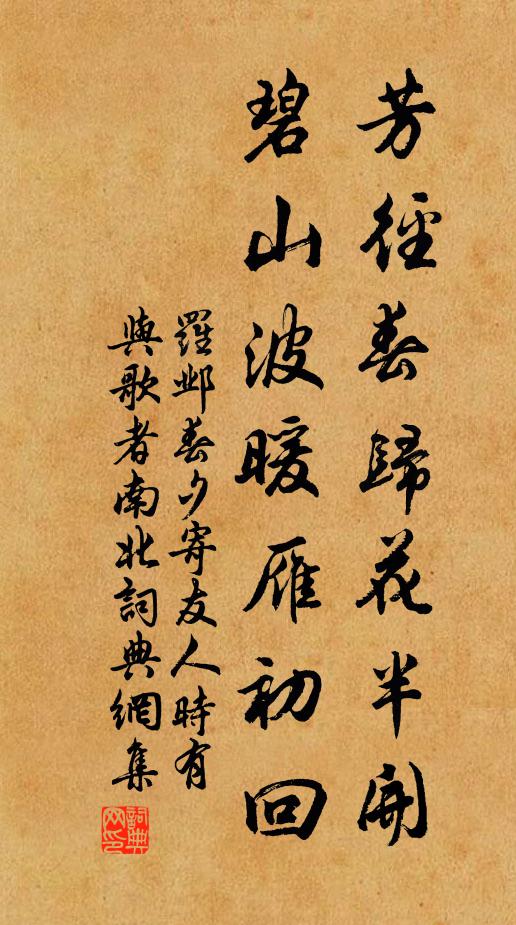 芳徑春歸花半開
碧山波暖雁初回
羅鄴春夕寄友人時有
與歌者南北詞典網集
詞典网印